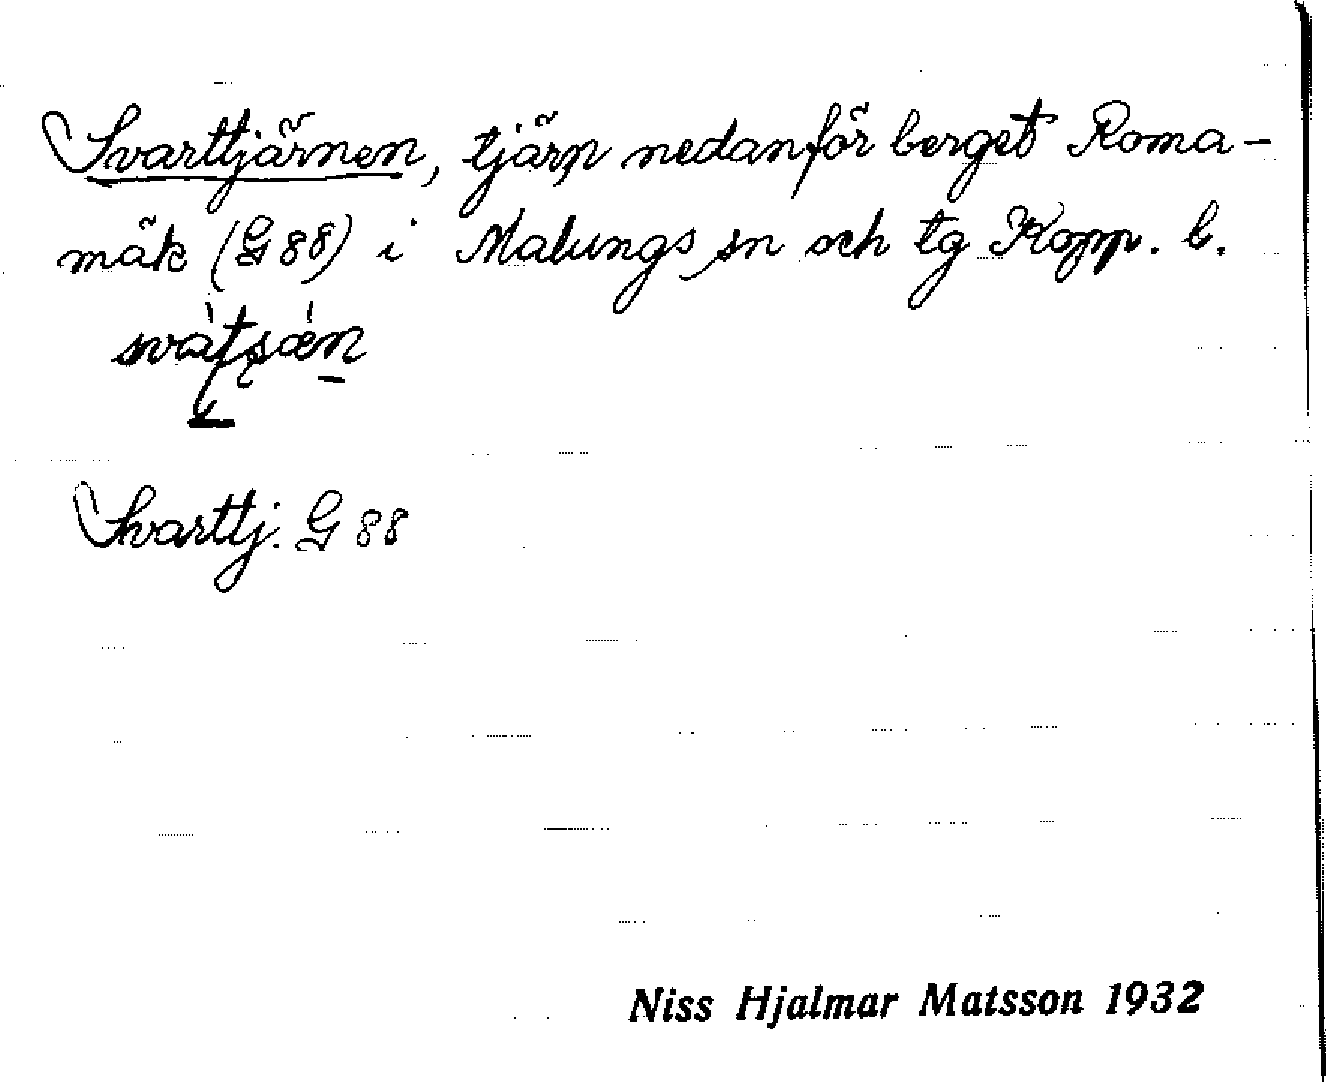 Svarttjärnen, tjärn nedanför berget Roma-
mäk (G 88) i Malungs sn och tg Kopp. l.
Svarttj. G 88
Niss Hjalmar Matsson 1932